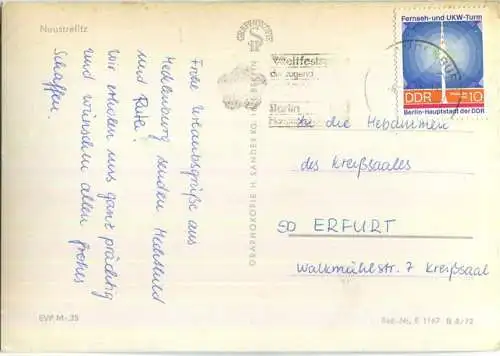 Neustrelitz
Frohe Urlaubsgrüße aus
Mecklenburg senden Mechthild
und Peter.
Wir erholen uns ganz prächtig
und wünschen allen frohes
Schaffen.
EVP M -,25
GRAPHOKOPIE
GRAPHOKOPIE H. SANDER KG. BERLIN
Weltfests
der Jugend
Berlin
Fernseh- und UKW-Turm
DDR 10
Berlin-Hauptstadt der DDR
An die Hebammen
des Kreißsaales
50 ERFURT
Walkmühlstr. 7 Kreißsaal
Best.-Nr. E 1167 B 4/72